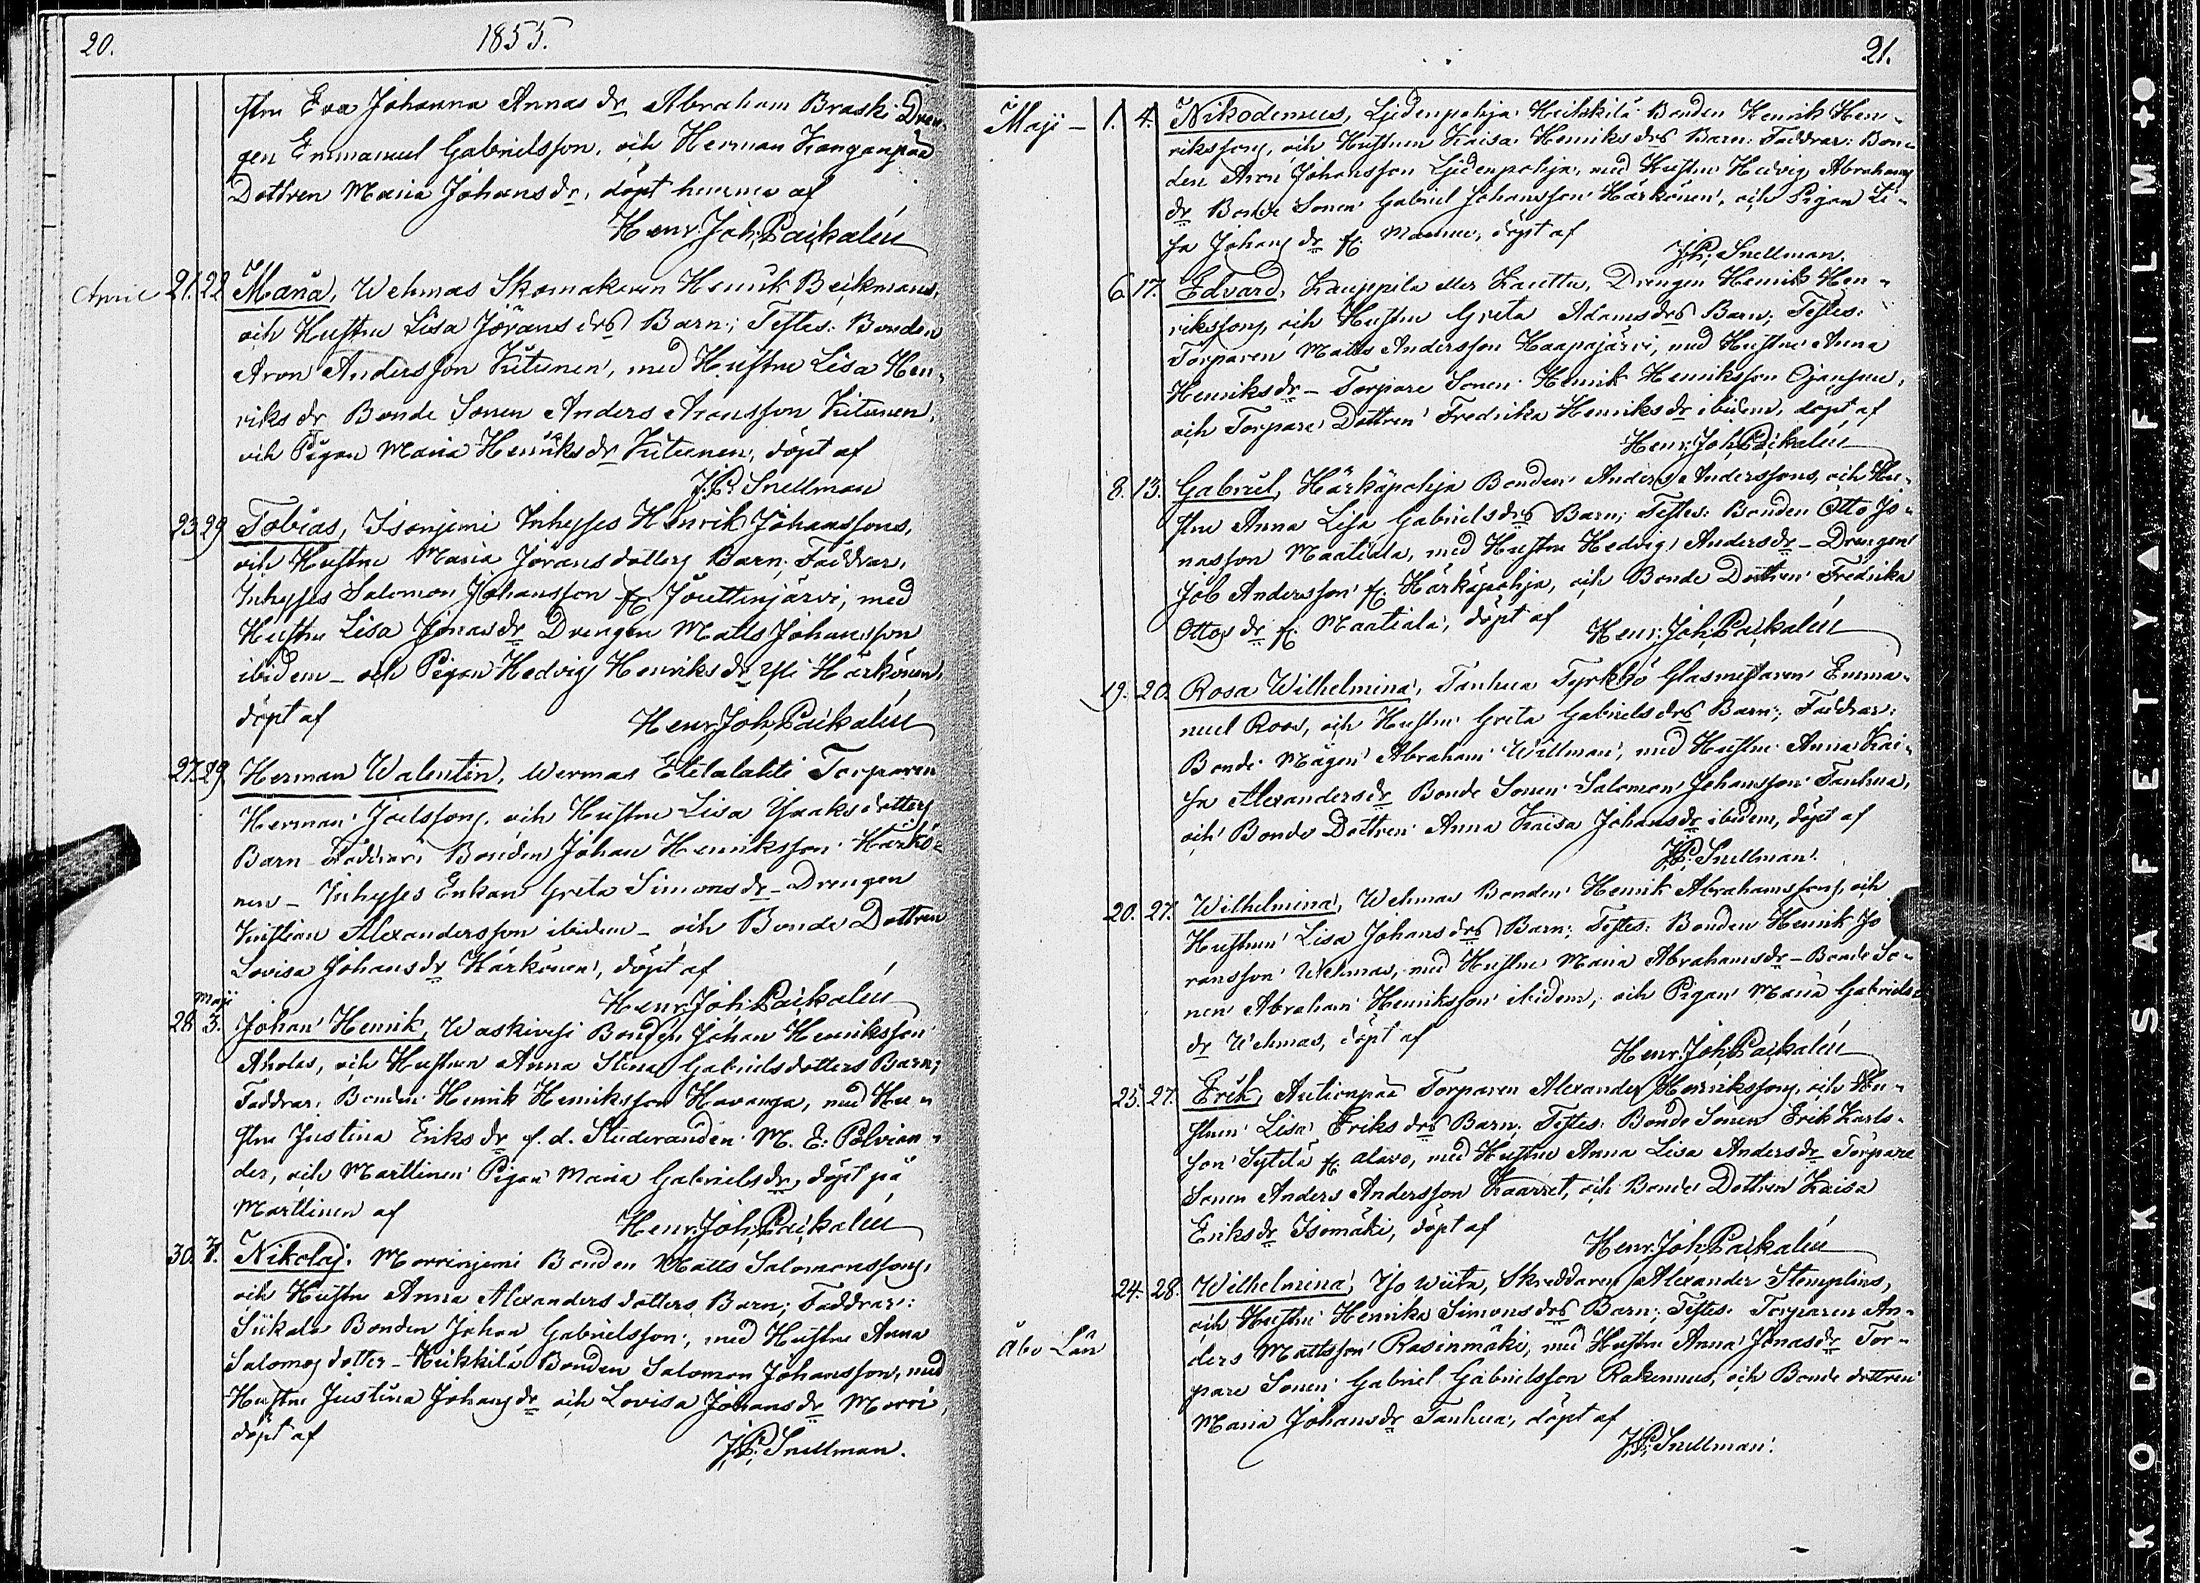 20.
1855.
stru Eva Johanna Annas dr Abraham Braski Dren-
gen Emmanuel Gabrielsson, och Herman Kanganpää
Dottren Maria Johans dr, döpt hemma af
Henr. Joh. Paikalén
April 21. 22 Maria, Wehmas Skomakaren Henrik Beckmans,
och Hustru Lisa Jörans drs Barn; Testes: Bonden
Aron Andersson Kutunen, med Hustru Lisa Hen-
riks dr Bonde Sonen Anders Aronsson Kutunen,
och Pigan Maria Henriks dr Kutunen, döpt af
J. P. Snellman
23 29 Tobias, Isoniemi Inhyses Henrik Johanssons,
och Hustru Maria Jöransdotters Barn; Faddrar.
Inhyses Salomon Johansson fr Jouttinjärvi, med
Hustru Lisa Jonas dr Drengen Matts Johansson
ibidem - och Pigan Hedvig Henriks dr Yli Härkönen,
döpt af
Henr. Joh. Paikalén
27. 29 Herman Walentin, Wermas Etelälahti Torparen
Herman Joelssons, och Hustru Lisa Isaks dotters
Barn Faddrar: Bonden Johan Henriksson Härkö-
nen - Inhyses Enkan Greta Simons dr - Drengen
Kristian Alexandersson ibidem - och Bonde Dottren
Lovisa Johans dr Härkönen, döpt af
Henr. Joh. Paikalén
Maji
28 3. Johan Henrik, Waskivesi Bonden Johan Henriksson
Aholas, och Hustrun Anna Stina Gabrielsdotters Barn;
Faddrar: Bonden Henrik Henriksson Havanga, med Hu-
stru Justina Eriks dr f. d. Studeranden M. E. Polvian-
der, och Marttinen Pigan Maria Gabriels dr, döpt på
Marttinen af
Henr. Joh. Paikalén
30. 7. Nikolaj. Morrinjemi Bonden Matts Salomonssons,
och Hustru Anna Alexanders dotters Barn; Faddrar:
Siikala Bonden Johan Gabrielsson, med Hustru Anna
Salomos dotter - Heikkilä Bonden Salomon Johansson, med
Hustru Justina Johans dr och Lovisa Johans dr Morri,
döpt af
J. P. Snellman.
21.
Maji - 1. 4. Nikodemus, Liedenpohja Heikkilä Bonden Henrik Hen-
rikssons, och Hustrun Kaisa Henriks drs Barn: Faddrar: Bon-
den Aron Johansson Liedenpohja, med Hustru Hedvig Abrahams
dr Bonde Sonen Gabriel Johansson Härkönen, och Pigan Li-
sa Johans dr fr döpt af
J. P. Snellman.
6. 17. Edvard, Kauppila eller Kautta, Drengen Henrik Hen-
rikssons, och Hustru Greta Adams drs Barn; Testes:
Torparen Matts Andersson Haapajärvi, med Hustru Anna
Henriks dr - Torpare Sonen Henrik Henriksson Ojansuu,
och Torpare Dottren Fredrika Henriks dr ibidem, döpt af
Henr. Joh. Paikalén
8. 13. Gabriel, Härkäpohja Bonden Anders Anderssons, och Hu-
stru Anna Lisa Gabriels drs Barn; Testes: Bonden Otto Jo-
nasson Maatiala, med Hustru Hedvig Anders dr - Drengen
Job Andersson fr Härkäpohja, och Bonde Dottren Fredrika
Ottos dr fr Maatiala, döpt af
Henr. Joh. Paikalén
19. 20. Rosa Wilhelmina, Tanhua Tyrkkö Glasmästaren Emma-
nuel Roos, och Hustru Greta Gabriels drs Barn; Faddrar:
Bonde Mågen Abraham Willman, med Hustru Anna Kai-
sa Alexanders dr Bonde Sonen Salomon Johansson Tanhua,
och Bonde Dottren Anna Kaisa Johans dr ibidem, döpt af
J. P. Snellman.
20. 27. Wilhelmina, Wehmas Bonden Henrik Abrahamssons, och
Hustrun Lisa Johans drs Barn; Testes: Bonden Henrik Jö
ransson Wehmas, med Hustru Maria Abrahams dr - Bonde So-
nen Abraham Henriksson ibidem, och Pigan Maria Gabriels
dr Wehmas, döpt af
Henr. Joh. Paikalén
25. 27. Erik, Autionpää Torparen Alexander Henrikssons, och Hu-
strun Lisa Eriks drs Barn; Testes: Bonde Sonen Erik Karls-
son Sytelä fr Alavo, med Hustru Anna Lisa Anders dr Torpare
Sonen Anders Andersson Kaarret, och Bonde Dottren Kaisa
Eriks dr Isomäki, döpt af
Henr. Joh. Paikalén
24. 28. Wilhelmina, Iso wiita, Skräddaren Alexander Stemplins,
och Hustru Henrika Simons drs Barn; Testes: Torparen An-
Åbo Län
ders Mattsson Rasinmäki, med Hustru Anna Jonas dr Tor-
pare Sonen Gabriel Gabrielsson Rakennus, och Bonde dottren
Maria Johans dr Tanhua, döpt af
J. P. Snellman.
KODAK SAFETY FILM